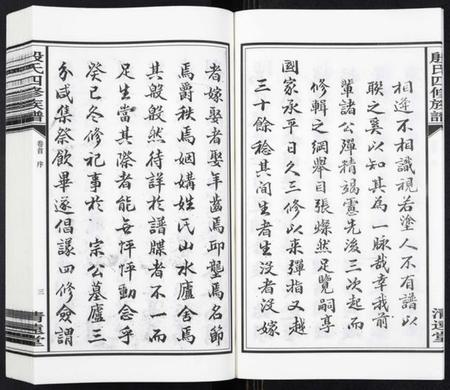 殷氏四修族譜
相逢不相識視若塗人不有譜以
聯之奚以知其為一脉哉幸我前
輩諸公殫精竭慮先後三次起而
修輯之綱舉目張燦然足覽嗣享
國家承平日久三修以來彈指又越
三十餘稔其間生者生没者没嫁
清連堂
殷氏四修族譜
卷首 序
三
清連堂
者嫁娶者娶年齒焉邱壟焉名節
焉爵秩焉姻媾姓氏山水廬舍焉
其般般然待詳於譜牒者不一而
足生當其際者能無怦怦動念乎
癸巳冬修祀事於 宗公墓廬三
分咸集祭飲畢遂倡議四修僉謂